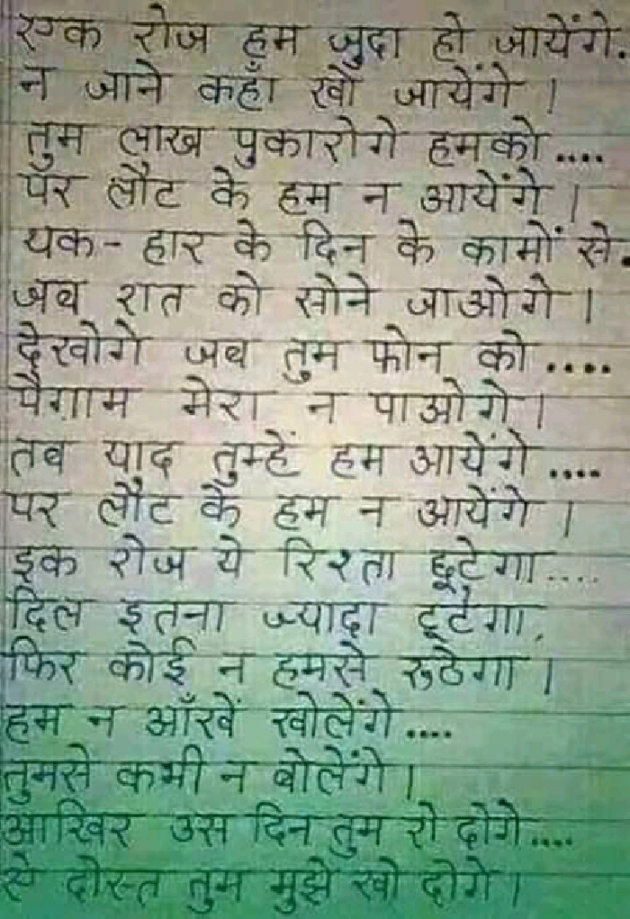 एक रोज हम जुदा हो जायेंगे.
न जाने कहाँ खो जायेंगे।
तुम लाख पुकारोगे हमको....
पर लौट के हम न आयेंगे।
थक-हार के दिन के कामों से.
जब रात को सोने जाओगे।
देखोगे जब तुम फोन को....
पैग़ाम मेरा न पाओगे।
तब याद तुम्हें हम आयेंगे....
पर लौट के हम न आयेंगे।
इक रोज ये रिश्ता छूटेगा....
दिल इतना ज्यादा टूटेगा,
फिर कोई न हमसे रुठेगा।
हम न आँखें खोलेंगे....
तुमसे कभी न बोलेंगे।
आखिर उस दिन तुम रो दोगे....
ऐ दोस्त तुम मुझे खो दोगे।